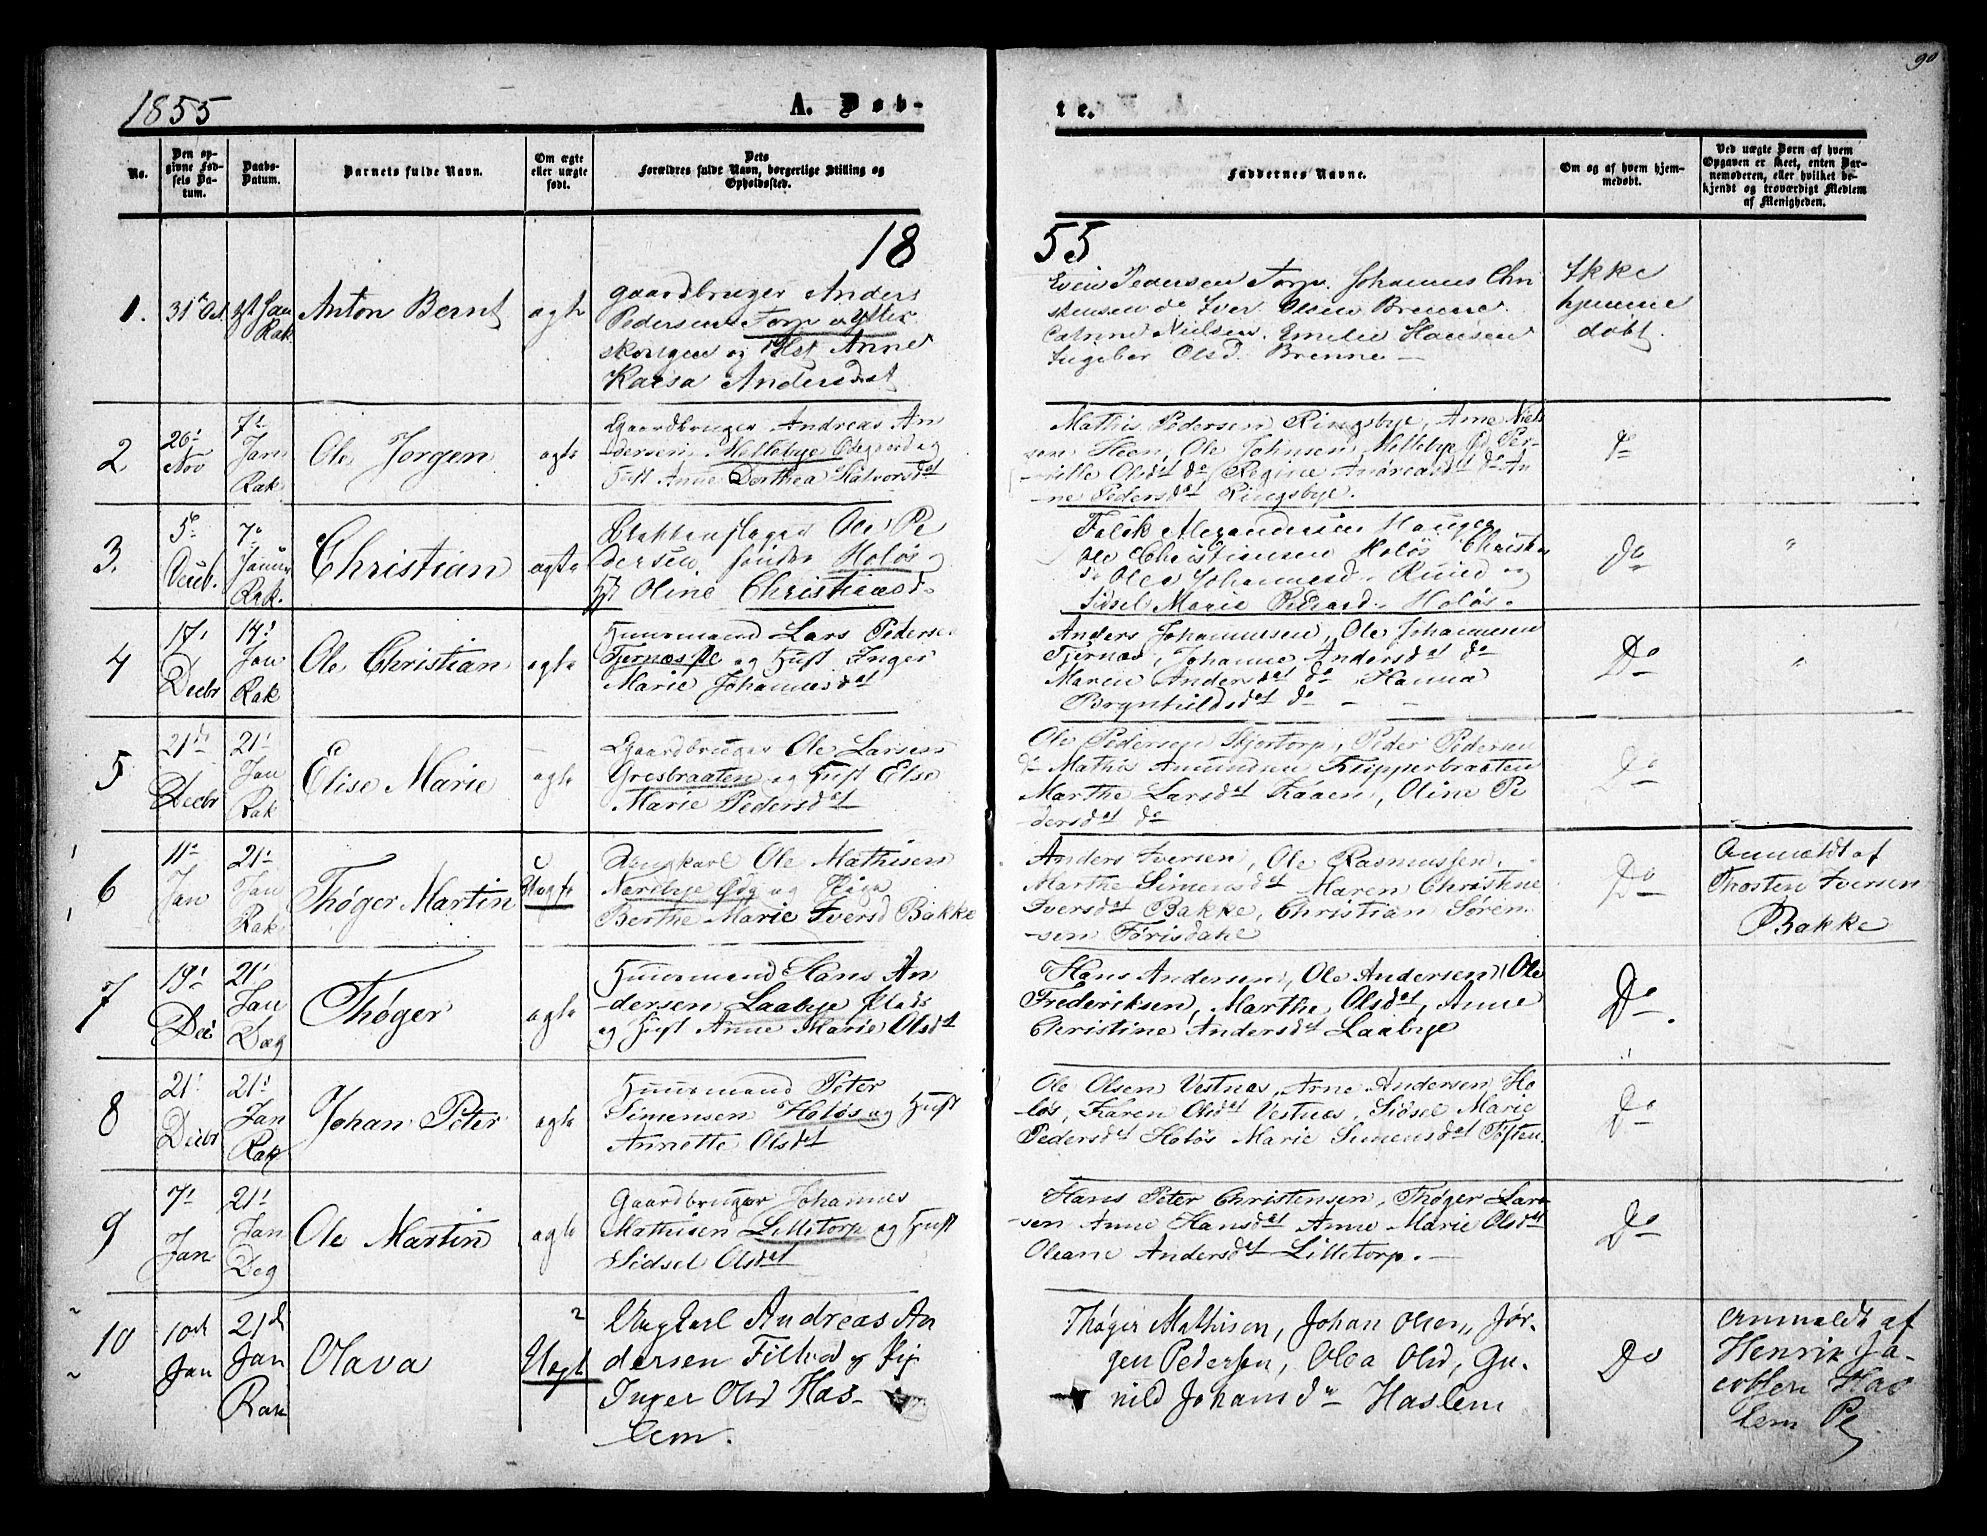 90
1855
A. Døb-
te.
No.
Den op-
givne Fød-
sels Da-
tum.
Daabs-
Datum.
Barnets fulde Navn.
Om ægte
eller uægte
født.
Dets
Forældres fulde Navn, borgerlige Stilling og
Opholdssted.
Faddernes Navne.
Om og af hvem hjem-
medøbt.
Ved uægte Børn af hvem
Opgaven er skeet, enten Bar-
nemoderen, eller hvilket be-
kjendt og troværdigt Medlem
af Menigheden.
18
55
1.
31
Jan
Rak
Anton Bernt
ægte
Gaardbruger Anders
Pedersen Torp
og Anne
Karsa Andersdat
Pedersen Torp. Johannes Chri
stensen do Iver Olsen Brenne.
Catrine Nielsen. Emilie Hansen
Ingebor Olsd. Brenne
Ikke
hjemme
døbt.
2
26
Nov
7
Jan
Rak
Ole Jørgen
ægte
Gaardbruger Andreas An
dersen, Mellebye Ødegaard og
Hust Anne Dorthea Halvorsdat
Mathis Pedersen Ringsbye, Arne Niel
sen Heen, Ole Johnsen Mellebye Per-
nille Olsdat do Regine Andreasdat do An
ne Pedersdat Ringsbye.
do
3.
5
Decb.
7
Januar
Rak.
Christian
ægte
Ole Pe
dersen søndre Holøs og
Hst Oline Christiansd.
Falck Alexandersen Hauger
Ole Christiansen Holøs
do Olea Johannesd. Ruud og
Sidsel Marie Pedersd. Holøs.
Do
"
4
17
Decbr
14
Jan
Rak
Ole Christian
ægte
Huusmand Lars Pedersen
Tjernæs pl og Hust Inger
Marie Johannesdat
Anders Johannesen, Ole Johannesen
Tjernæs, Johanne Andersdat do
Maren Andersdat do Hanna
Brynhildsdat do
Do
"
5
21de
Decbr
21
Jan
Rak
Elise Marie
ægte
Gaardbruger Ole Larsen
Græsbraaten og Hust Elise
Marie Pedersdat
Ole Pedersen Skjørtorp, Peder Pedersen
do Mathis Amundsen Klipperbraaten
Marthe Larsdat Kaaen, Oline Pe
dersdat do
Do
6
11
Jan
21
Jan
Rak
Thøger Martin
Uægte
Ungkarl Ole Mathisen
Nærebye Ødg og Piga
Berthe Marie Iversd Bakke
Anders Iversen, Ole Rasmussen,
Marthe Simensdat Maren Christine
Iversdat Bakke, Christian Søren-
sen Tørisdahl
Do
Anmeldt af
Thosten Iversen
Bakke
7
19
Dec
21
Jan
Dæg
Thøger
ægte
Huusmand Hans An
dersen Laabye plads
og Hust Anne Marie Olsdat
Hans Andersen, Ole Andersen, Ole
Frederiksen, Marthe Olsdat, Anne
Christine Andersdat Laabye
Do
8
21
Decbr
21
Jan
Rak
Johan Peter
ægte
Huusmand Peter
Simensen Holøs og Hust
Annette Olsdat
Ole Olsen Vestnæs, Arne Andersen Ho
løs, Karen Olsdat Vestnæs, Sidsel Marie
Pedersdat Holøs Marie Simensdat Toften.
Do
9
7
Jan
21
Jan
Deg
Ole Martin
ægte
Gaardbruger Johannes
Mathisen Lilletorp og Hust
Sidsel Olsdat
Hans Peter Christensen, Thøger Lar-
sen Anne Hansdat Anne Marie Olsdat
Oleane Andersdat Lilletorp.
Do
10
10de
Jan
21de
Jan
Rak
Olava
Uægte
Ungkarl Andreas An
dersen og Pig
Inger Olsd Has-
lem.
Thøger Mathisen, Johan Olsen, Jør-
gen Pedersen, Olea Olsd, Gu-
nild Johansdr Haslem
Do
Anmeldt af
Henrik Ja-
cobsen Has
lem